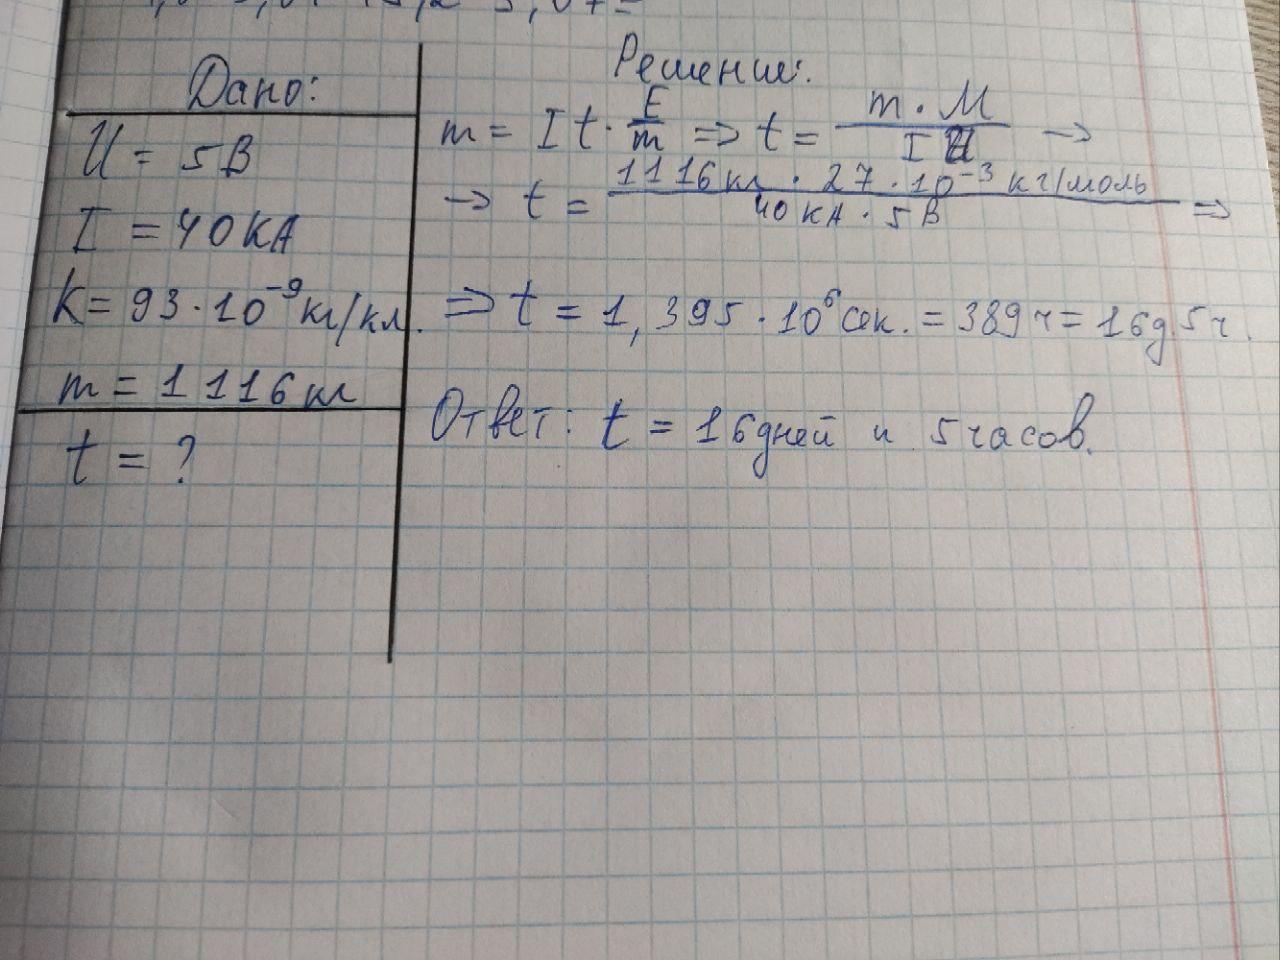 Дано:
U = 5В
I = 40кА
k = 93 · 10⁻⁹ кг/кл.
m = 1116кг
t = ?
Решение:
m = It · E/m => t = m · M / I U →
→ t = 1116кг · 27 · 10⁻³ кг/моль / 40 кА · 5 В =>
=> t = 1,395 · 10⁶ сек. = 389 ч = 16д. 5ч.
Ответ: t = 16 дней и 5 часов.